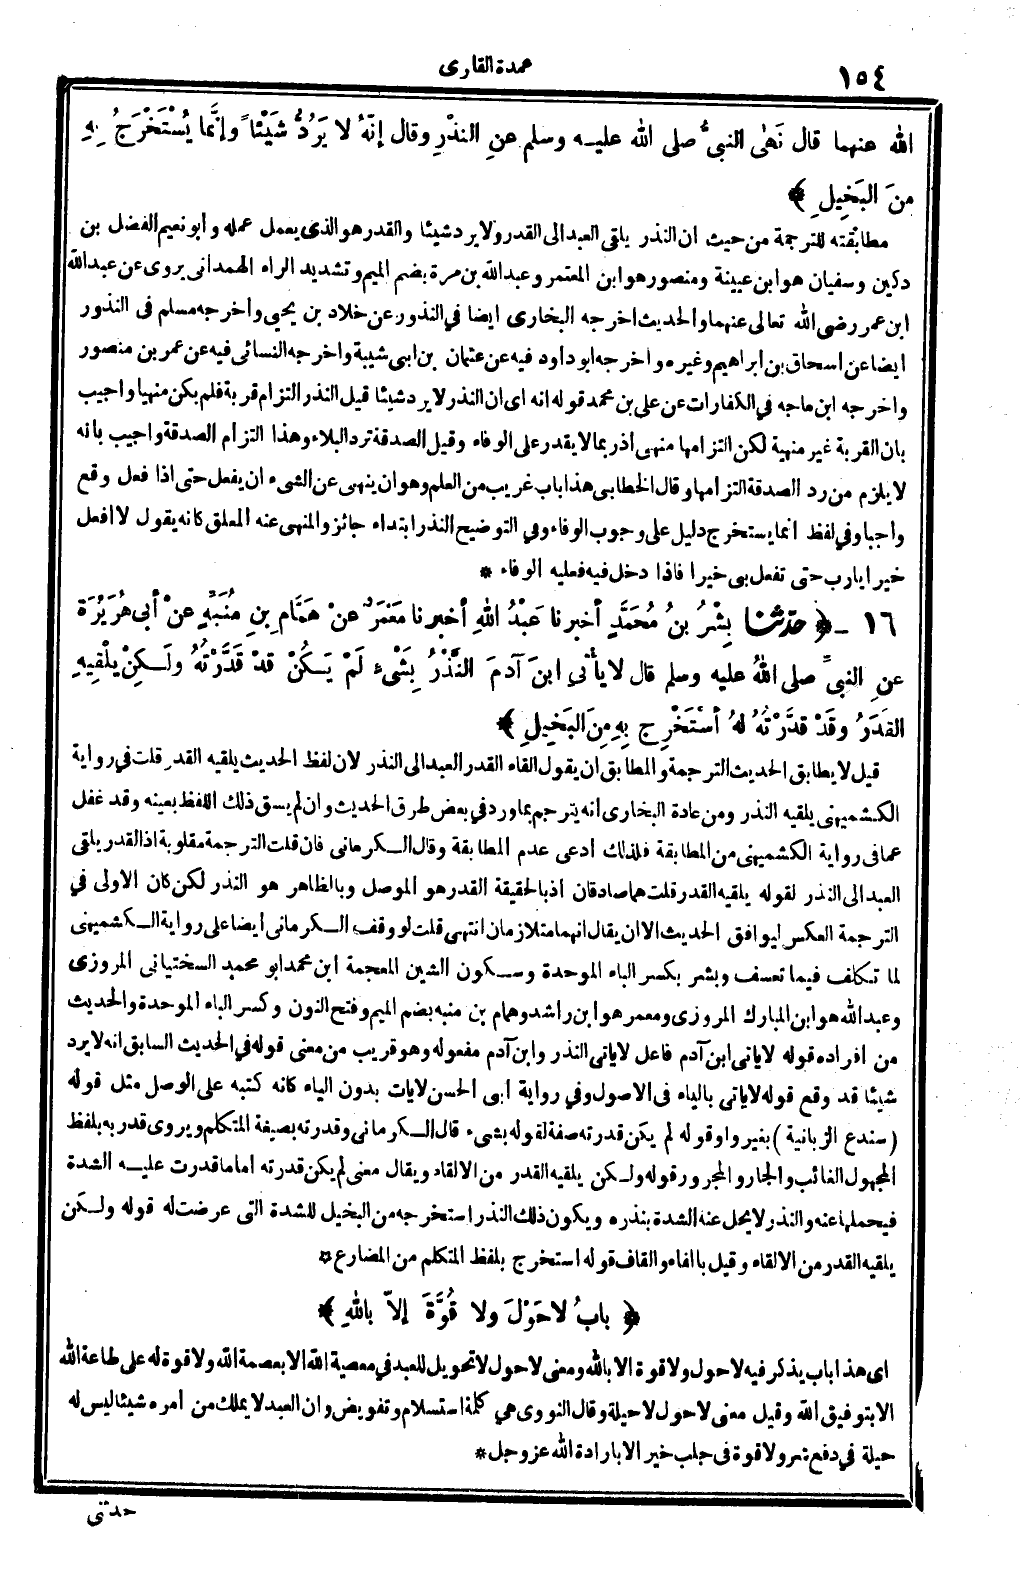 ١٥٤
عمدة القارى
الله عنهما قال نَهَى النبىُّ صلى الله عليــه وسلم عنِ النذْرِ وقال إنَّهُ لا يَرُدُّ شَيْئاً وإنَّما يُسْتَخْرَجُ بِهِ
منَ البَخِيلِ ﴾
مطابقته للترجمة من حيث ان النذر يلقى العبد الى القدر ولا يرد شيئا والقدر هو الذى يعمل عمله وأبو نعيم الفضل بن
دكين وسفيان هو ابن عيينة ومنصور هو ابن المعتمر وعبد الله بن مرة بضم الميم وتشديد الراء الهمدانى يروى عن عبد الله
ابن عمر رضى الله تعالى عنهما والحديث اخرجه البخارى ايضا في النذور عن خلاد بن يحيى واخرجه مسلم فى النذور
ايضا عن اسحاق بن ابراهيم وغيره واخرجه ابو داود فيه عن عثمان بن ابى شيبة واخرجه النسائى فيه عن عمر بن منصور
واخرجه ابن ماجه في الكفارات عن على بن محمد قوله انه اى ان النذر لا يرد شيئا قيل النذر التزام قربة فلم يكن منهيا واجيب
بان القربة غير منهية لكن التزامها منهى اذ ربما لا يقدر على الوفاء وقيل الصدقة ترد البلاء وهذا التزام الصدقة واجيب بانه
لا يلزم من رد الصدقة التزامها وقال الخطابى هذا باب غريب من العلم وهو ان ينهى عن الشىء ان يفعل حتى اذا فعل وقع
واجبا وفي لفظ انما يستخرج دليل على وجوب الوفاء وفي التوضيح النذر ابتداء جائز والمنهى عنه المعلق كانه يقول لا افعل
خيرا يارب حتى تفعل بى خيرا فاذا دخل فيه فعليه الوفاء *
١٦ ـ ﴿ حدّثنا بِشْرُ بنُ مُحَمَّدٍ أخبرنا عَبْدُ اللهِ أخبرنا مَعْمَرٌ عنْ هَمَّامِ بنِ مُنَبِّهٍ عنْ أبى هُرَيْرَةَ
عنِ النبىِّ صلى اللهُ عليه وسلم قال لا يأتى ابنَ آدمَ النَّذْرُ بِشَىْءٍ لَمْ يَـكُنْ قدْ قَدَّرْتُهُ ولَـكِنْ يلْقِيهِ
القَدَرُ وقَدْ قدَّرْتُهُ لهُ أسْتَخْرِج بِهِ مِنَ البَخِيلِ ﴾
قيل لا يطابق الحديث الترجمة والمطابق ان يقول القاء القدر العبد الى النذر لان لفظ الحديث يلقيه القدر قلت في رواية
الكشميهنى يلقيه النذر ومن عادة البخارى انه يترجم بما ورد في بعض طرق الحديث وان لم يسق ذلك اللفظ بعينه وقد غفل
عما فى رواية الكشميهنى من المطابقة فلذلك ادعى عدم المطابقة وقال الـكرمانى فان قلت الترجمة مقلوبة اذ القدر يلقى
العبد الى النذر لقوله يلقيه القدر قلت هما صادقان اذ بالحقيقة القدر هو الموصل وبالظاهر هو النذر لكن كان الاولى في
الترجمة العكس ليوافق الحديث الا ان يقال انهما متلازمان انتهى قلت لو وقف الـكرمانى أيضا على رواية الـكشميهنى
لما تـكلف فيما تعسف وبشر بكسر الباء الموحدة وسـكون الشين المعجمة ابن محمد ابو محمد السختيانى المروزى
وعبد الله هو ابن المبارك المروزى ومعمر هو ابن راشد وهمام بن منبه بضم الميم وفتح النون وكسر الباء الموحدة والحديث
من افراده قوله لا ياتى ابن آدم فاعل لا ياتى النذر وابن آدم مفعوله وهو قريب من معنى قوله في الحديث السابق انه لا يرد
شيئا قد وقع قوله لا ياتى بالياء فى الاصول وفي رواية ابى الحسن لا يات بدون الياء كانه كتبه على الوصل مثل قوله
(سندع الزبانية) بغير واو قوله لم يكن قدرته صفة لقوله بشىء قال الـكرمانى وقدرته بصيغة المتكلم ويروى قدر به بلفظ
المجهول الغائب والجار والمجرور قوله ولـكن يلقيه القدر من الالقاء ويقال معنى لم يكن قدرته اما ما قدرت عليــه الشدة
فيحملها عنه والنذر لا يحل عنه الشدة بنذره ويكون ذلك النذر استخرجه من البخيل للشدة التى عرضت له قوله ولـكن
يلقيه القدر من الالقاء وقيل بالفاء والقاف قوله استخرج بلفظ المتكلم من المضارع *
﴿ بابُ لا حَوْلَ ولا قُوَّةَ إلاَّ باللهِ ﴾
اى هذا باب يذكر فيه لا حول ولا قوة الا بالله ومعنى لا حول لا تحويل للعبد في معصية الله الا بعصمة الله ولا قوة له على طاعة الله
الا بتوفيق الله وقيل معنى لا حول لا حيلة وقال النووى هي كلمة استسلام وتفويض وان العبد لا يملك من أمره شيئا ليس له
حيلة في دفع شر ولا قوة فى جلب خير الا بارادة الله عز وجل *
حدثنى